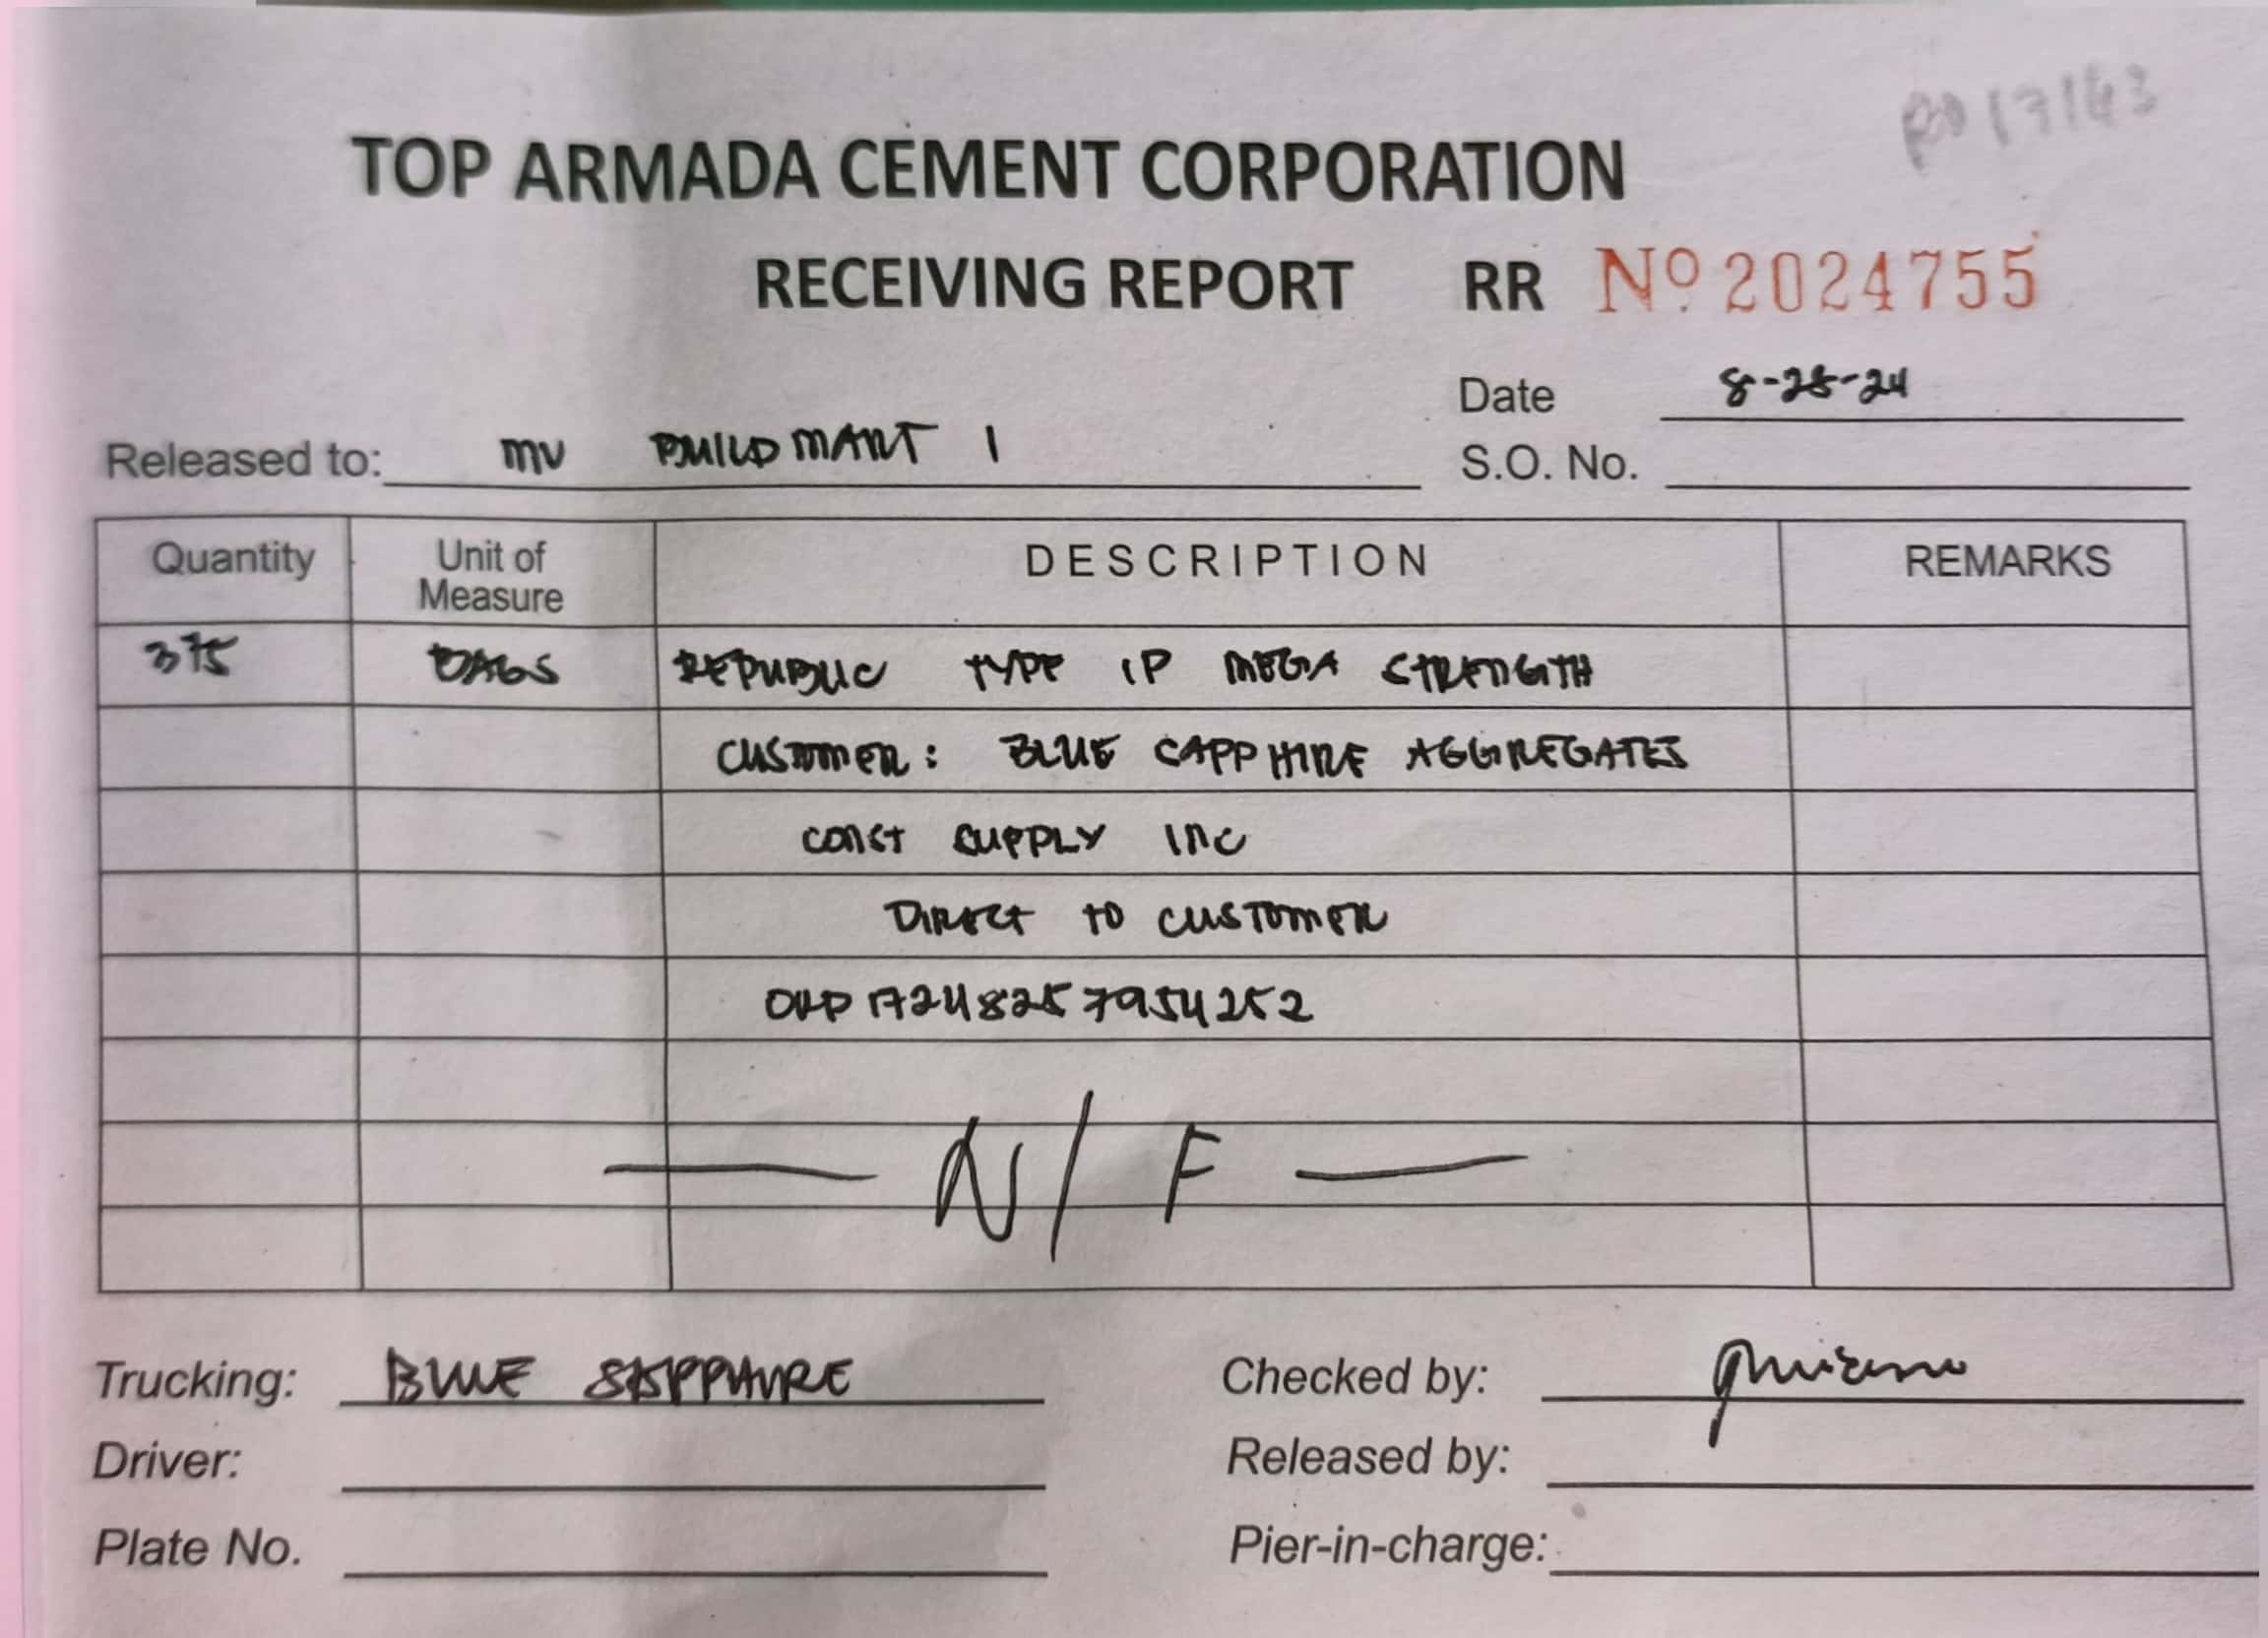 RO 17143
TOP ARMADA CEMENT CORPORATION
RECEIVING REPORT RR Nº 2024755
Date 8-28-24
Released to: MV BUILDMART 1
S.O. No.
Quantity Unit of Measure DESCRIPTION REMARKS
375 BAGS REPUBLIC TYPE 1P MEGA STRENGTH
CUSTOMER: BLUE CAPPHIRE AGGREGATES
CONST SUPPLY INC
DIRECT TO CUSTOMER
ORD 17248257954252
N/F
Trucking: BLUE SAPPHIRE Checked by:
Driver: Released by:
Plate No. Pier-in-charge: